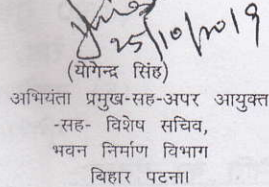 25/10/2019
(योगेन्द्र सिंह)
अभियंता प्रमुख-सह-अपर आयुक्त
-सह- विशेष सचिव,
भवन निर्माण विभाग
बिहार पटना।